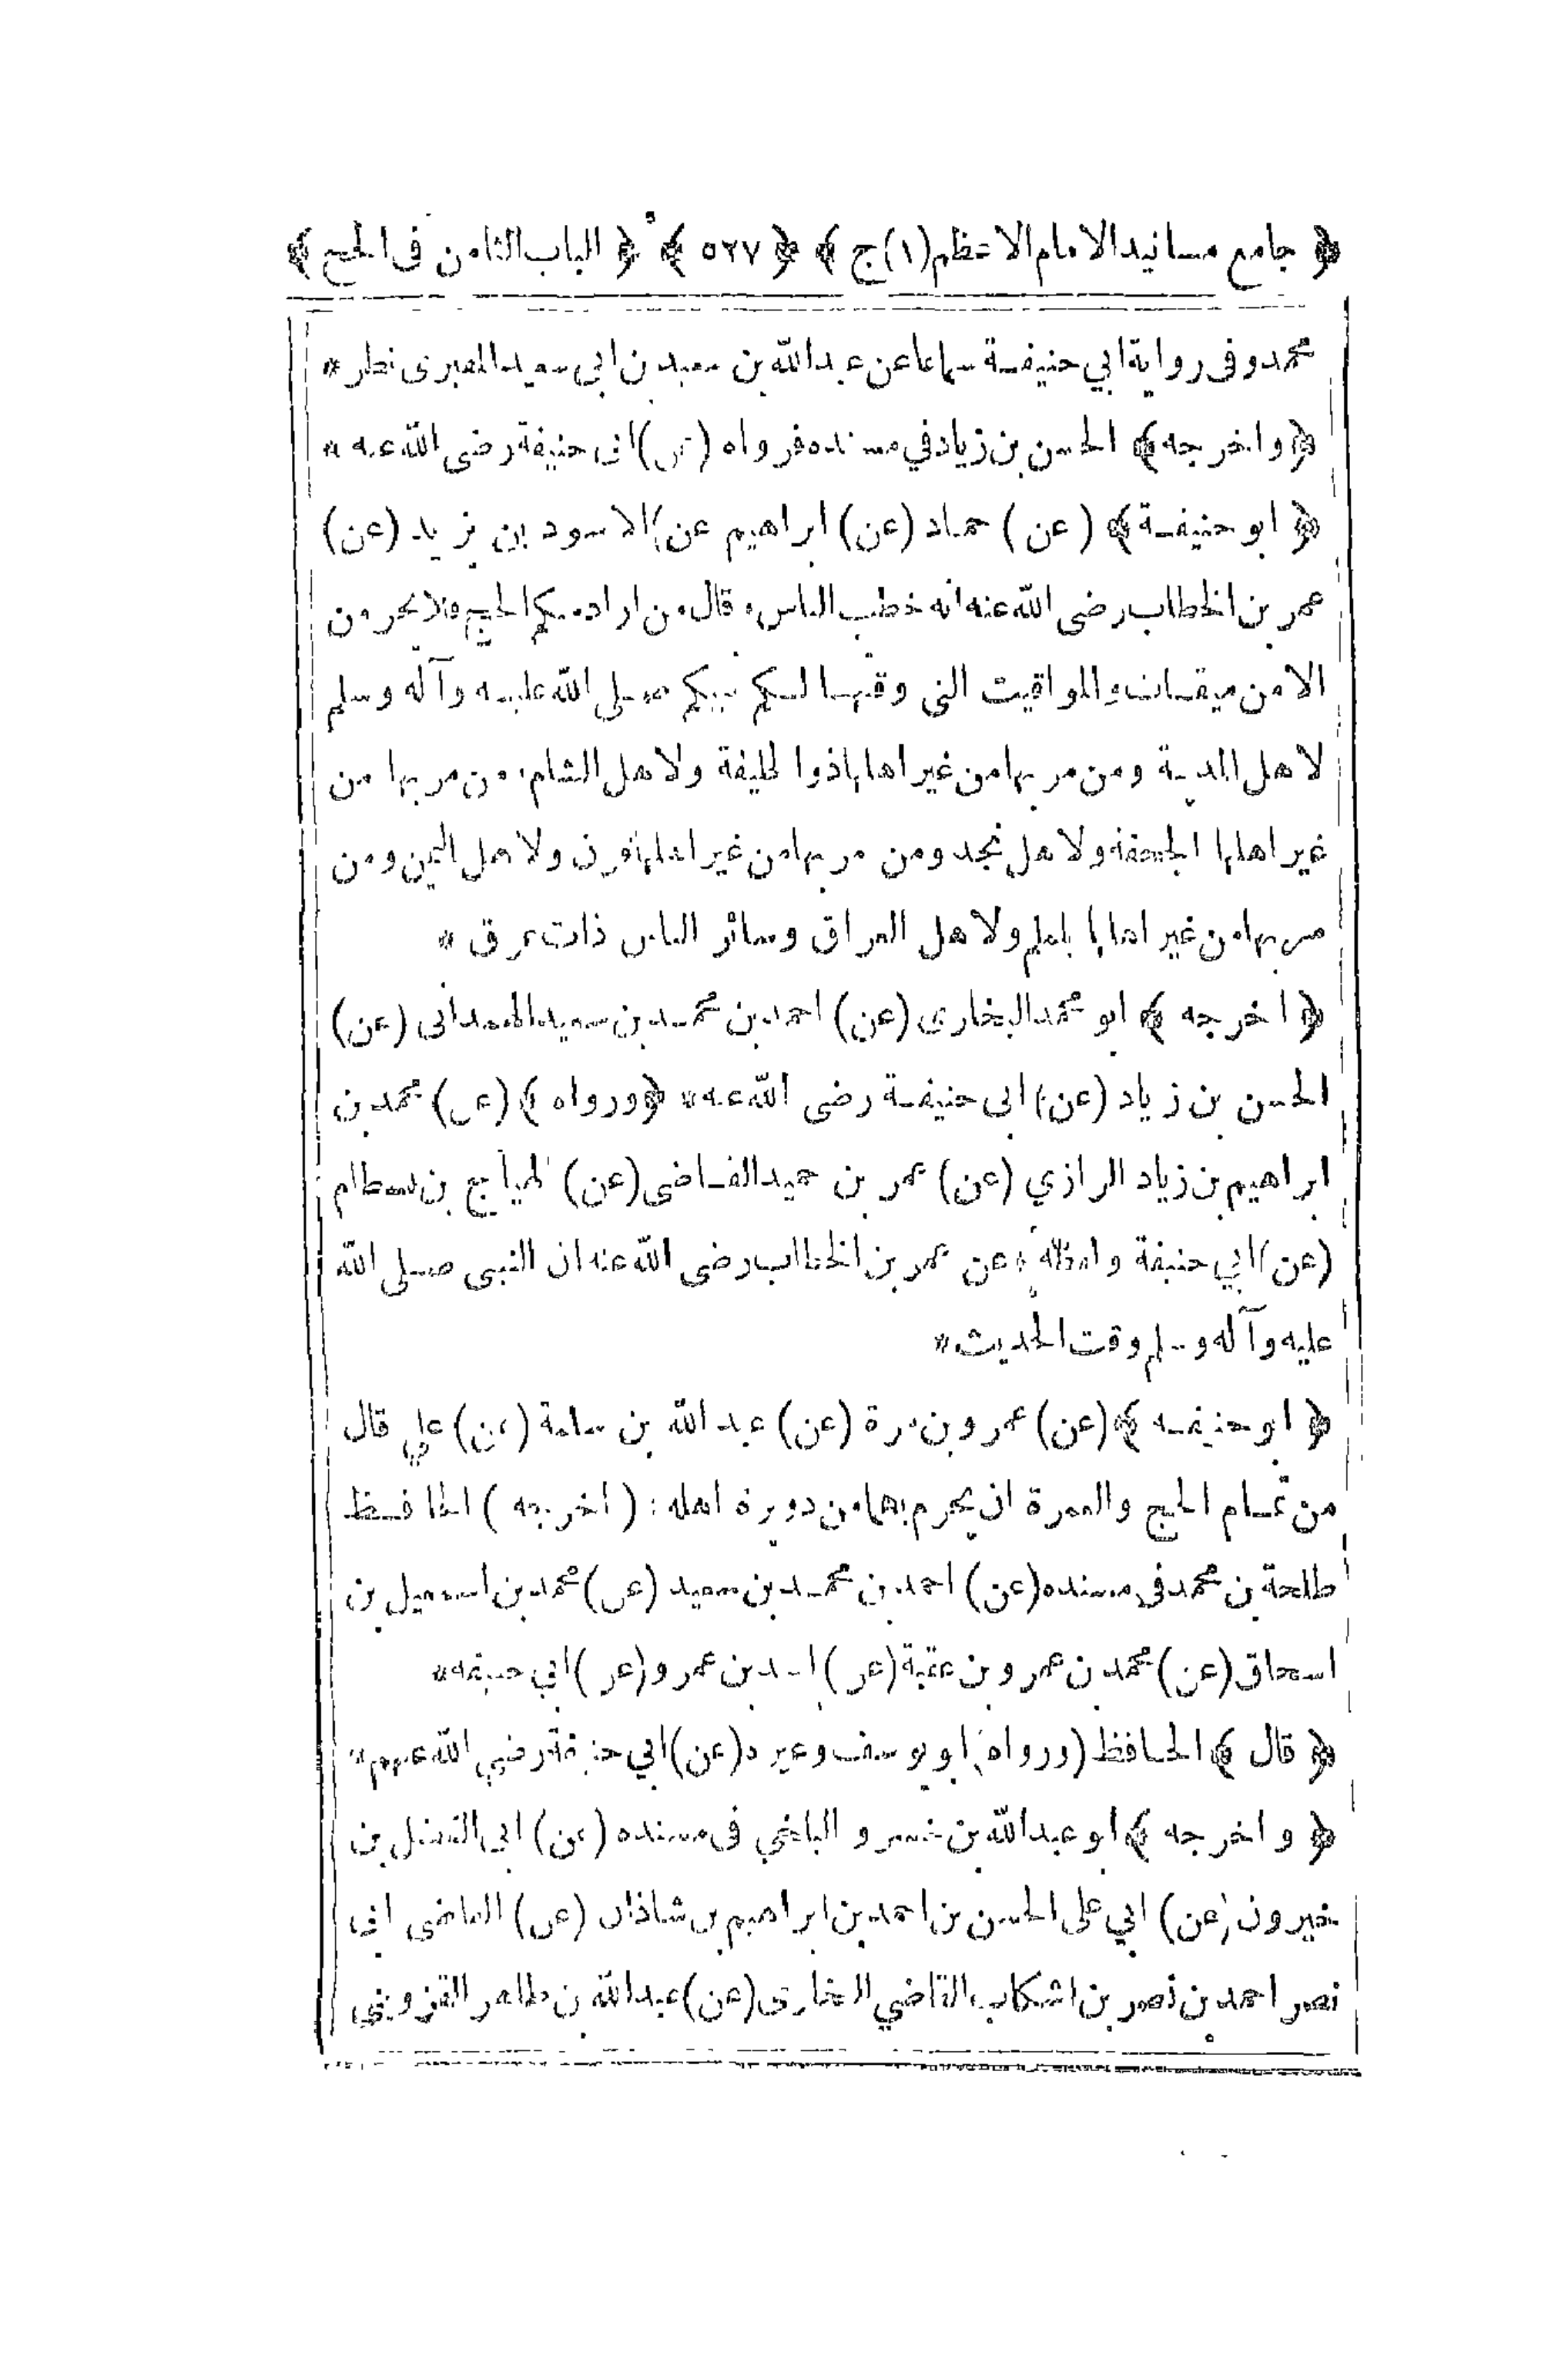 ﴿ جامع مسانيد الامام الاعظم (١) ج ﴾ ﴿ ٥٢٧ ﴾ ﴿ الباب الثامن فى الحج ﴾
محمد وفى رواية ابي حنيفة سماعا عن عبدالله بن سعيد بن ابي سعيد المقبرى نظر *
﴿ واخرجه ﴾ الحسن بن زياد في مسنده فرواه (عن) ابى حنيفة رضى الله عنه *
﴿ ابو حنيفة ﴾ (عن) حماد (عن) ابراهيم عن) الاسود بن يزيد (عن)
عمر بن الخطاب رضى الله عنه انه خطب الناس وقال من اراد منكم الحج فلا يحرمن
الا من ميقات والمواقيت التى وقتها لكم نبيكم صلى الله عليه وآله وسلم
لاهل المدينة ومن مر بها من غير اهلها ذوا لحليفة ولاهل الشام ومن مر بها من
غير اهلها الجحفة ولاهل نجد ومن مر بها من غير اهلها قرن ولاهل اليمن ومن
مر بها من غير اهلها يلملم ولاهل العراق وسائر الناس ذات عرق *
﴿ اخرجه ﴾ ابو محمد البخارى (عن) احمد بن محمد بن سعيد الهمدانى (عن)
الحسن بن زياد (عن) ابى حنيفة رضى الله عنه * ﴿ ورواه ﴾ (عن) محمد بن
ابراهيم بن زياد الرازي (عن) عمر بن حميد القاضى (عن) بن بسطام
(عن) ابي حنيفة ولفظه عن عمر بن الخطاب رضى الله عنه ان النبى صلى الله
عليه وآله وسلم وقت الحديث *
﴿ ابو حنيفه ﴾ (عن) عمرو بن مرة (عن) عبد الله بن سلمة (عن) علي قال
من تمام الحج والعمرة ان يحرم بهما من دويرة اهله : (اخرجه) الحافظ
طلحة بن محمد فى مسنده (عن) احمد بن محمد بن سعيد (عن) محمد بن اسمعيل بن
اسحاق (عن) محمد بن عمرو بن عقبة (عن) اسد بن عمرو (عن) ابي حنيفه *
﴿ قال ﴾ الحافظ (ورواه) ابو يوسف وغيره (عن) ابي حنيفة رضي الله عنهم *
﴿ و اخرجه ﴾ ابو عبدالله بن خسرو البلخي فى مسنده (عن) ابى الفضل بن
خيرون (عن) ابي على الحسن بن احمد بن ابراهيم بن شاذان (عن) القاضى ابى
نصر احمد بن نصر بن اشكاب القاضي البخارى (عن) عبدالله بن طاهر القزوينى